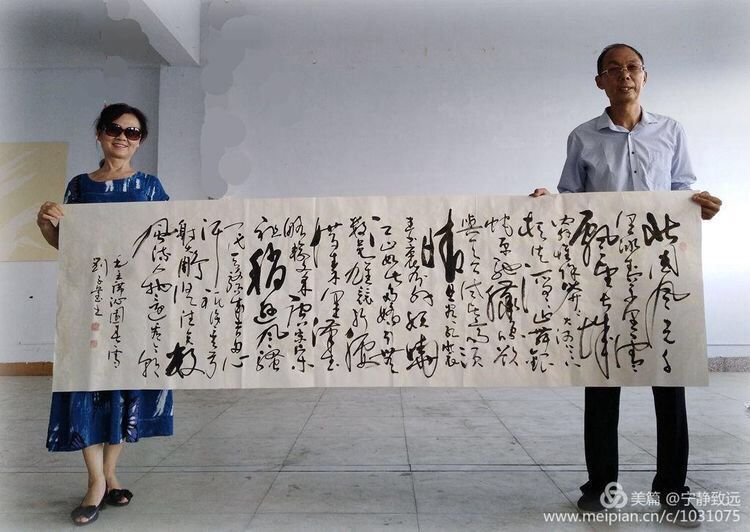 北国风光千
里冰封万里雪
飘望长城
内外惟余莽莽大河上下
顿失滔滔山舞银
蛇原驰蜡象欲
与天公试比高须
晴日看红装
素裹分外妖娆
江山如此多娇引无
数英雄竞折腰
惜秦皇汉武
略输文采唐宗宋
祖稍逊风骚
一代天骄成吉思
汗只识弯弓
射雕俱往矣数
风流人物还看今朝
毛主席沁园春雪
美篇 @宁静致远
www.meipian.cn/c/1031075